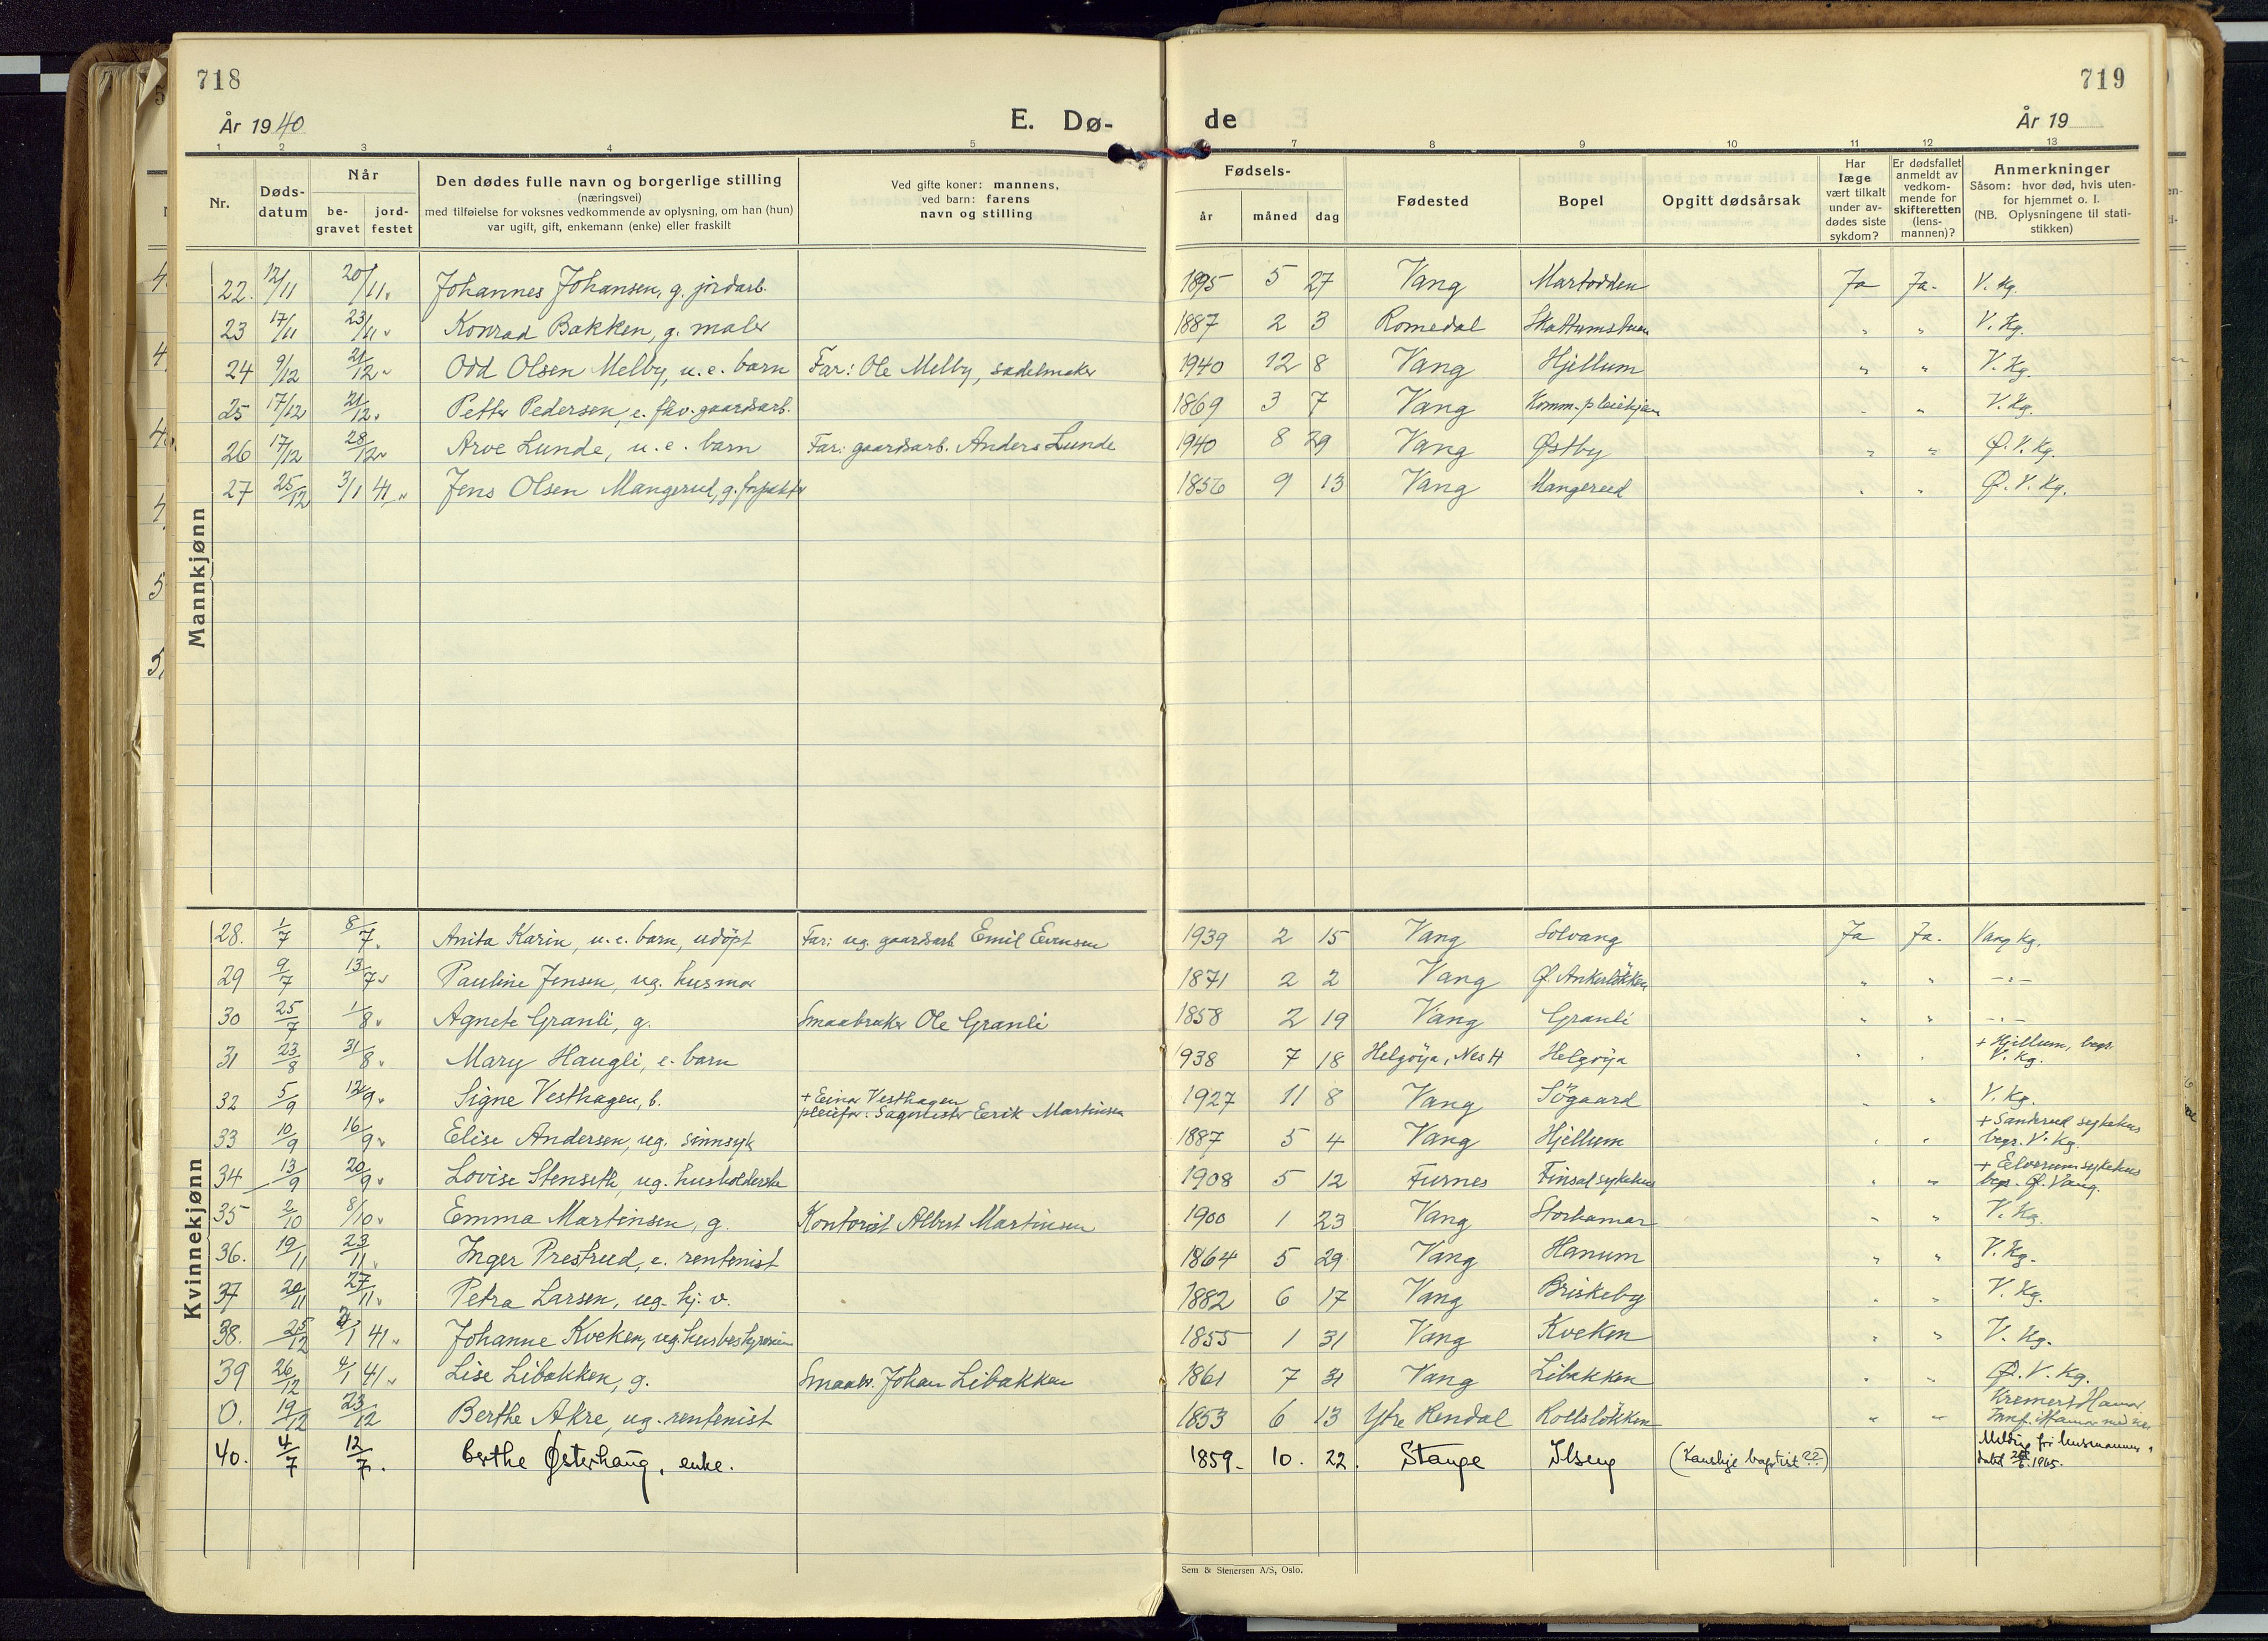 718
År 1940
E. Dø-
de
719
År 19
1 2 3 4 5 7 8 9 10 11 12 13
Nr.
Døds-
datum
Når
be-
gravet
jord-
festet
Den dødes fulle navn og borgerlige stilling
(næringsvei)
med tilføielse for voksnes vedkommende av oplysning, om han (hun)
var ugift, gift, enkemann (enke) eller fraskilt
Ved gifte koner: mannens,
ved barn: farens
navn og stilling
Fødsels-
år måned dag
Fødested
Bopel
Opgitt dødsårsak
Har
læge
vært tilkalt
under av-
dødes siste
sykdom?
Er dødsfallet
anmeldt av
vedkom-
mende for
skifteretten
(lens-
mannen)?
Anmerkninger
Såsom: hvor død, hvis uten-
for hjemmet o. l.
(NB. Oplysningene til stati-
stikken)
Mannkjønn
22. 12/11 20/11 " Johannes Johansen, g. jordarb. 1895 5 27 Vang Martodden Ja Ja. V. Kg.
23 17/11 23/11 " Konrad Bakken, g. maler 1887 2 3 Romedal Skattumstuen " " V. Kg.
24 9/12 21/12 " Odd Olsen Melby, u. e. barn Far: Ole Melby, sadelmaker 1940 12 8 Vang Hjellum " " V. Kg.
25 17/12 21/12 " Petter Pedersen, e. fhv. gaardsarb. 1869 3 7 Vang Komm. pleiehjem " " V. Kg.
26 17/12 28/12 " Arve Lunde, u. e. barn Far: gaardsarb. Anders Lunde 1940 8 29 Vang Østby " " Ø. V. Kg.
27 25/12 3/1 41 " Jens Olsen Mangerud, g. forpakter 1856 9 13 Vang Mangerud " " Ø. V. Kg.
Kvinnekjønn
28. 1/7 8/7 " Anita Karin, u. e. barn, udöpt Far: ug. gaardsarb Emil Evensen 1939 2 15 Vang Solvang Ja Ja. Vang Kg.
29 9/7 13/7 " Pauline Jensen, ug. husmor 1871 2 2 Vang Ø. Ankerlökken " " - " -
30 25/7 1/8 " Agnete Granli, g. Smaabruker Ole Granli 1858 2 19 Vang Granli " " - " -
31 23/8 31/8 " Mary Haugli, e. barn 938 7 18 Helgöya, Nes H Helgöya " " + Hjellum, begr.
V. Kg.
32 5/9 12/9 " Signe Vesthagen, b. + Einar Vesthagen
pleiefar: Sagmester Erik Martinsen 1927 11 8 Vang Sögaard " " V. Kg.
33 10/9 16/9 " Elise Andersen, ug. sinnsyk 1887 5 4 Vang Hjellum " " + Sanderud sykehus
begr. V. Kg.
34 13/9 20/9 " Lovise Stenseth, ug. husholderske 1908 5 12 Furnes Finsal sykehus " " + Elverum sykehus
begr. Ø. Vang.
35 2/10 8/10 " Emma Martinsen, g. Kontorist Albert Martinsen 1900 1 23 Vang Storhamar " " V. Kg.
36. 19/11 23/11 " Inger Prestrud, e. rentenist 1864 5 29. Vang Hanum " " V. Kg.
37 20/11 27/11 " Petra Larsen, ug. hj. v. 1882 6 17 Vang Briskeby " " V. Kg.
38. 25/12 /1 41 " Johanne Kveken, ug. husbestyrerinne 1855 1 31 Vang Kveken " " V. Kg.
39 26/12 4/1 41 " Lise Libakken, g. Smaabr. Johan Libakken 1861 7 31 Vang Libakken " " Ø. V. Kg.
0. 19/12 23/12 Berthe Akre, ug. rentenist 1853 6 13 Ytre Rendal Kollslökken " " Kremert Hamar
Innf. i Hamar
40. 4/7 12/7. Berthe Østerhaug, enke. 1859. 10. 22. Stange Ilseng (Kanskje baptist??) Melding fr.
datert 1965.
Sem & Stenersen A/S, Oslo.